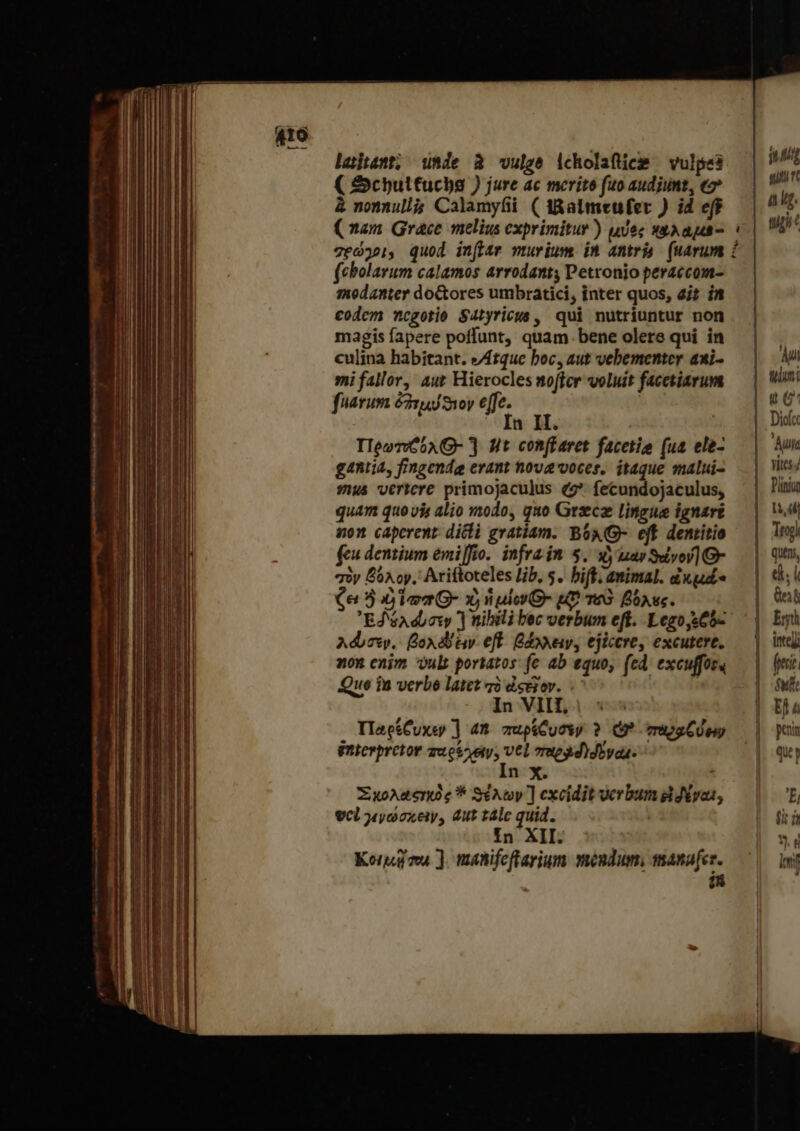 410
latitant; unde à vulgo scholasticæ vulpes
( Schulfuchs ) jure ac merito suo audiunt, &
à nonnullis Calamysii ( Kalmeuser ) id est
( nam Græce melius exprimitur ) μύες καλαμο-
τρώγοι, quod instar murium in antris suarum
scholarum calamos arrodant; Petronio peraccom-
modanter doctores umbratici, inter quos, ait in
eodem negotio Satyricus, qui nutriuntur non
magis sapere possunt, quam bene olere qui in
culina habitant. Atque hoc, aut vehementer ani-
mi fallor, aut Hierocles noster voluit facetiarum
suarum esse.
In II.
Πρωτοβόλος ] Ut constaret facetiæ sua ele-
gantia, fingendæ erant novæ voces. itaque malui-
mus vertere primojaculus & secundojaculus,
quam quovis alio modo, quo Græcæ linguæ ignari
non caperent dicti gratiam. Βόλος est dentitio
seu dentium emissio. infra in 5.
τὸν βόλον. Aristoteles lib. 5. hist. animal.
nihili hoc verbum est. Lego
est βάλλειν, ejicere, excutere.
non enim vult portatos se ab equo, sed excussos.
Quo in verbo latet τὸ ἀστεῖον.
In VIII.
] an
interpretor vel
In X.
Σχολαστικὸς * θέλων ] excidit verbum εἰδέναι,
vel γιγνώσκειν, aut tale quid.
In XII.
] manifestarium mendum. manuscr.
in